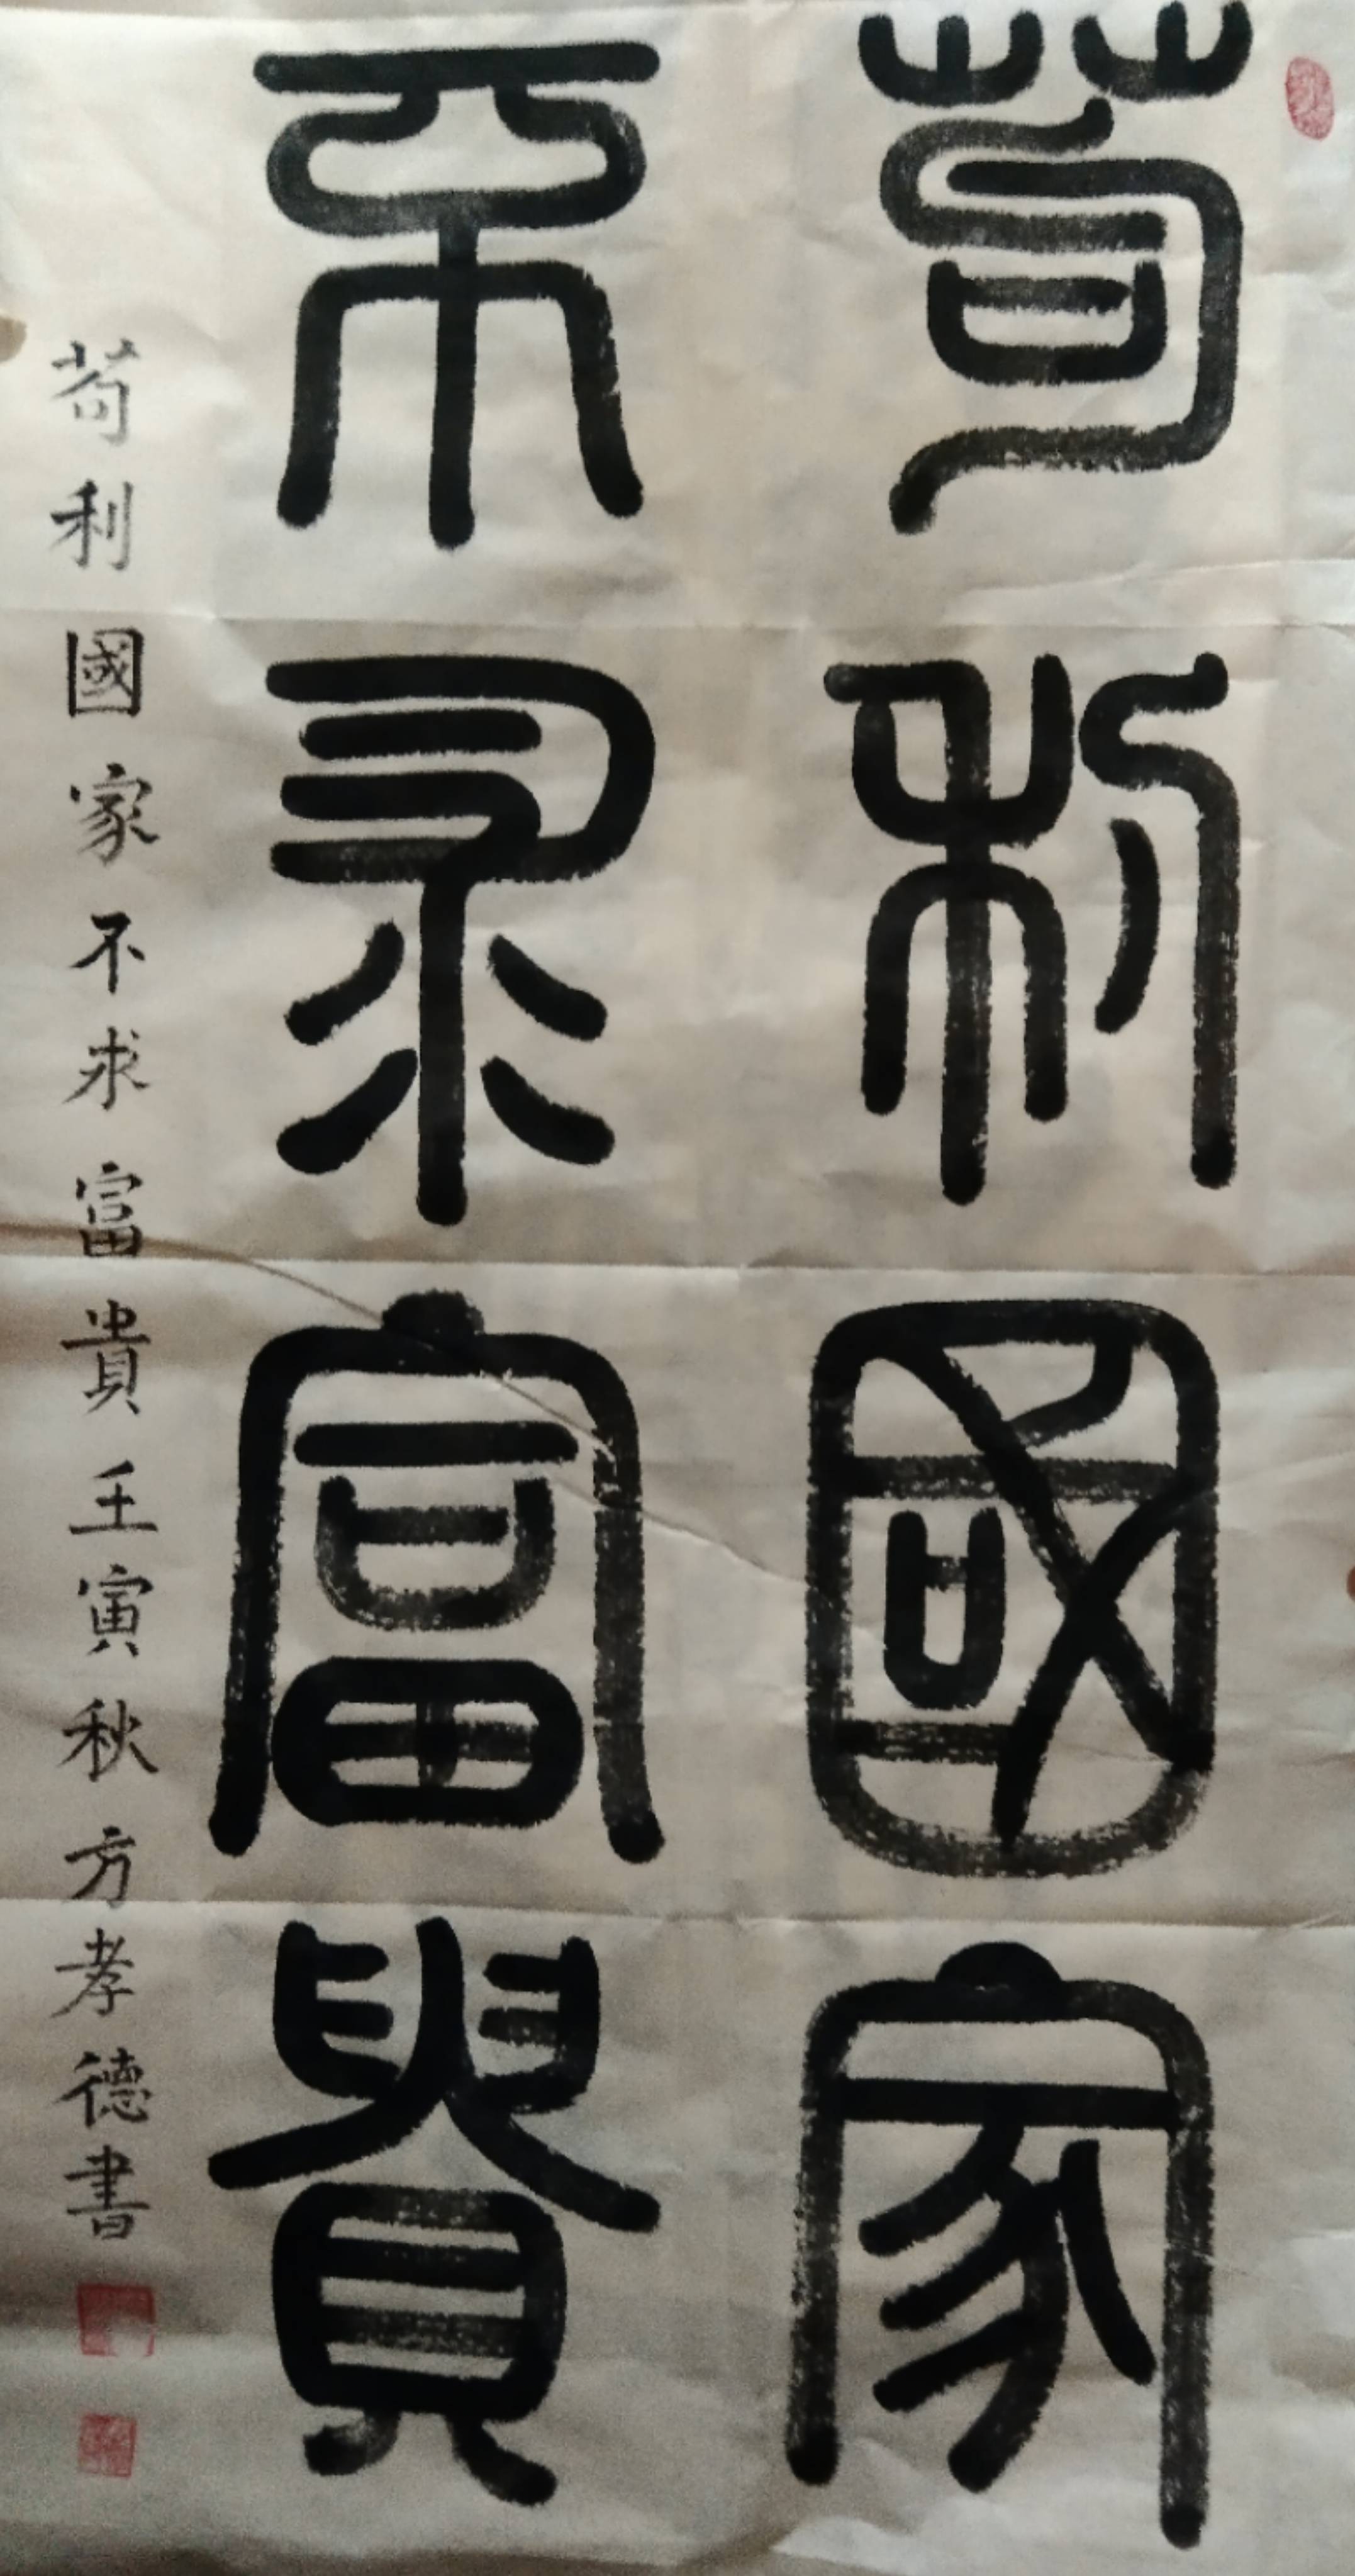 苟利國家
不求富貴
苟利國家不求富貴壬寅秋方孝德書